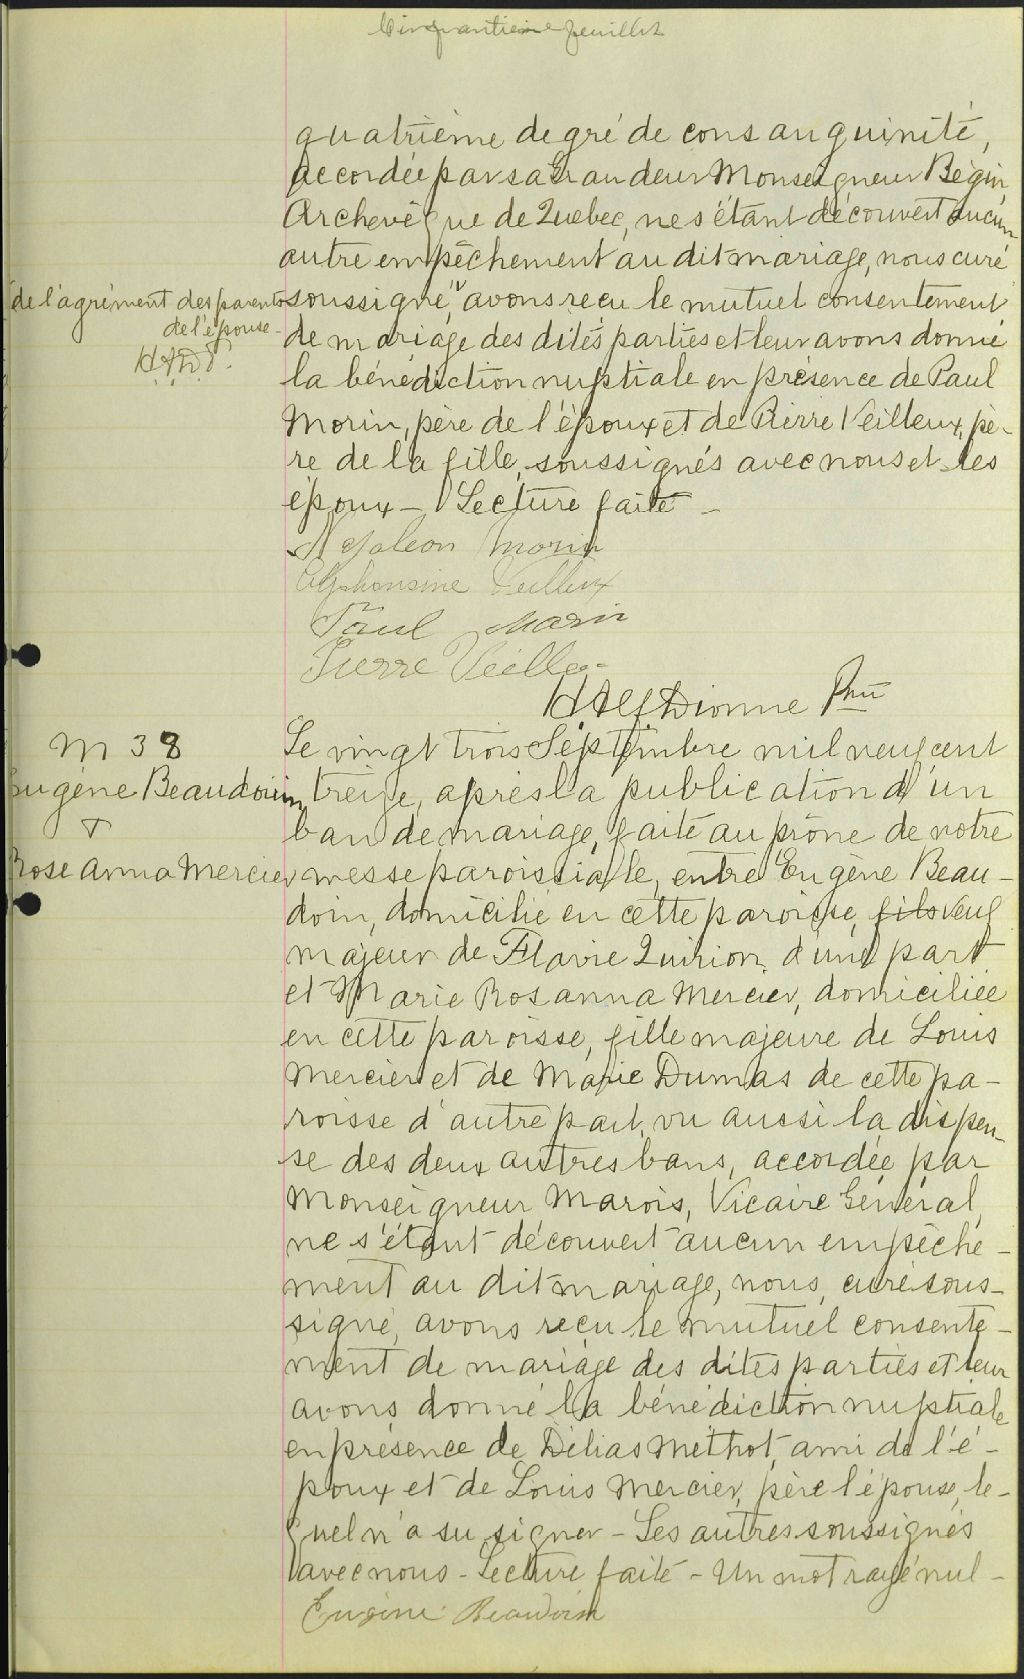 Cinquantième feuillet
quatrième degré de consanguinité,
accordée par sa Grandeur Monseigneur Bégin
Archevêque de Québec, ne s'étant découvert aucun
autre empêchement au dit mariage, nous curé
de l'agrément des parents
de l'épouse -
H.A.D.
soussigné, avons reçu le mutuel consentement
de mariage des dites parties et leur avons donné
la bénédiction nuptiale en présence de Paul
Morin, père de l'époux et de Pierre Veilleux, pè-
re de la fille, soussignés avec nous et les
époux - Lecture faite -
Napoléon Morin
Alphonsine Veilleux
Paul Morin
Pierre Veilleux
H Alf Dionne Ptre
M 38
Eugène Beaudoin
&
Rose Anna Mercier
Le vingt trois Septembre mil neuf cent
treize, après la publication d'un
ban de mariage, faite au prône de notre
messe paroissiale, entre Eugène Beau-
doin, domicilié en cette paroisse, fils veuf
majeur de Flavie Quirion, d'une part
et Marie Rosanna Mercier, domiciliée
en cette paroisse, fille majeure de Louis
Mercier et de Marie Dumas de cette pa-
roisse d'autre part, vu aussi la dispen-
se des deux autres bans, accordée par
Monseigneur Marois, Vicaire Général,
ne s'étant découvert aucun empêche-
ment au dit mariage, nous, curé sous-
signé, avons reçu le mutuel consente-
ment de mariage des dites parties et leur
avons donné la bénédiction nuptiale
en présence de Délias Méthot, ami de l'é-
poux et de Louis Mercier, père l'épouse, le-
quel n'a su signer - Les autres soussignés
avec nous - Lecture faite - Un mot rayé nul -
Eugène Beaudoin